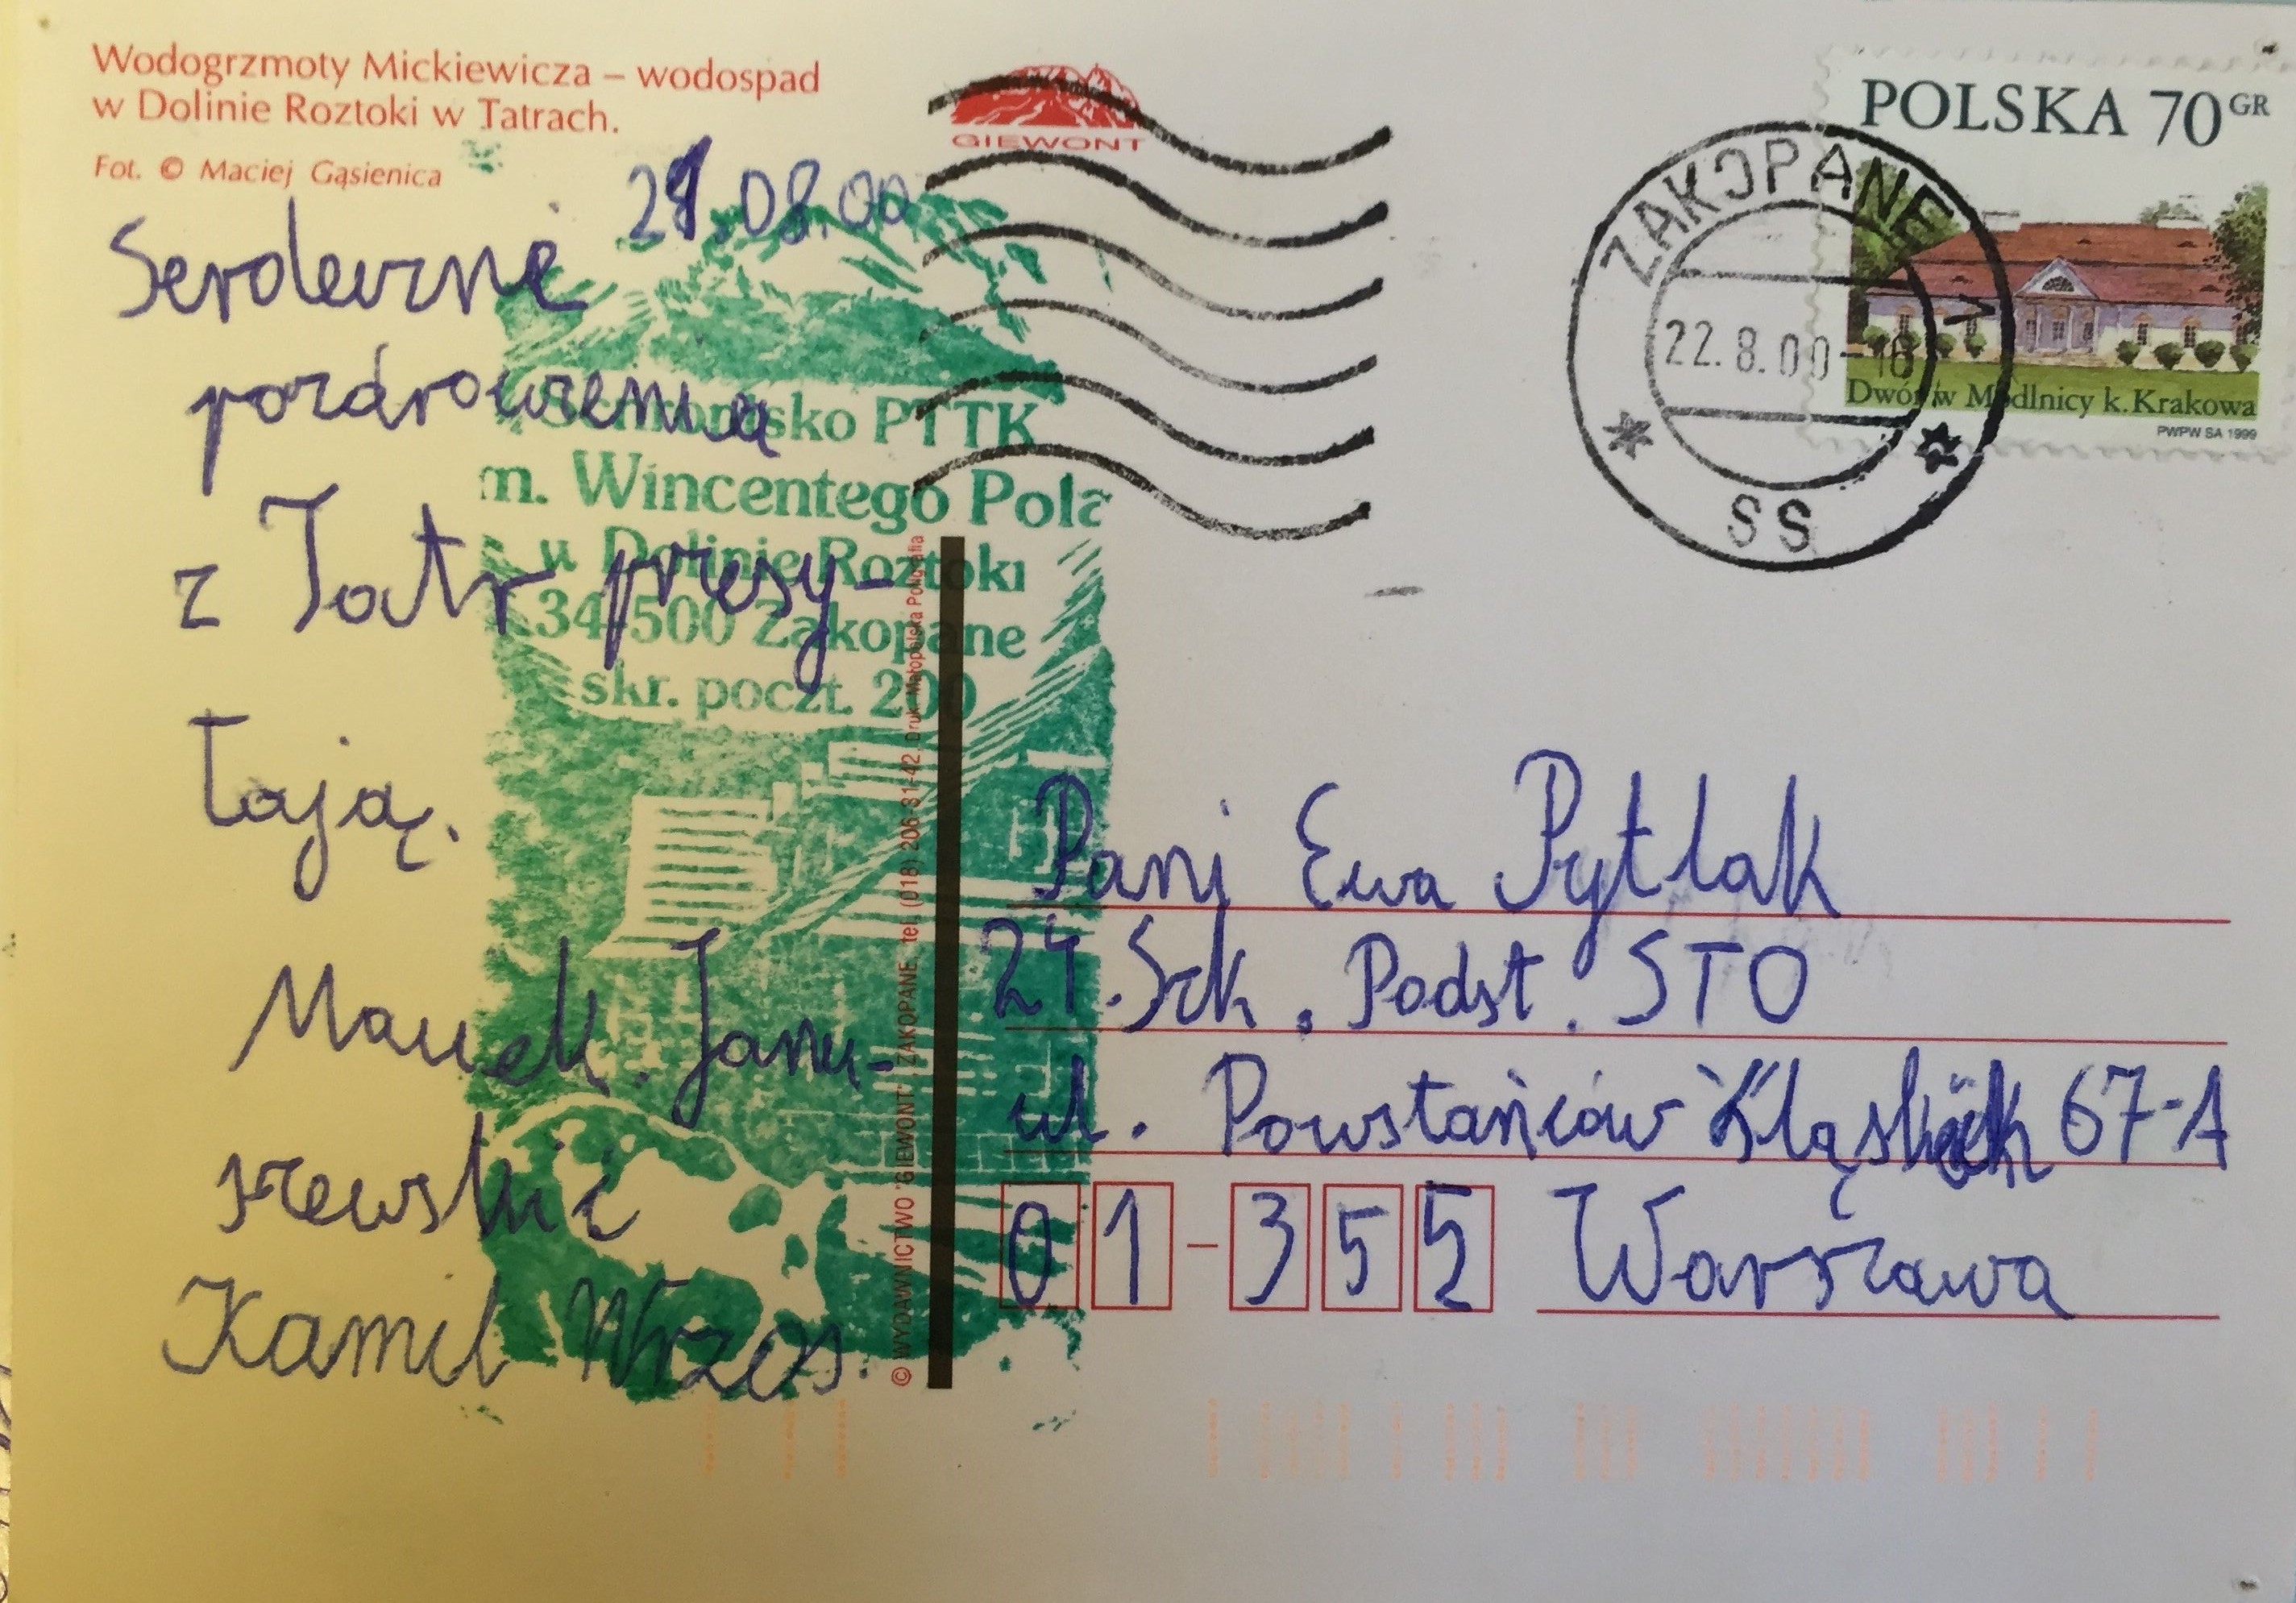 Wodogrzmoty Mickiewicza – wodospad
w Dolinie Roztoki w Tatrach.
Fot. © Maciej Gąsienica
GIEWONT
POLSKA 70 GR
Dwór w Modlnicy k. Krakowa
PWPW SA 1999
ZAKOPANE
22.8.00-16
SS
21.08.00
Serdeczne
pozdrowienia
z Tatr przesy-
łają.
Maciek. Janu-
szewski i
Kamil Wrzos.
Schronisko PTTK
m. Wincentego Pola
w Dolinie Roztoki
34-500 Zakopane
skr. poczt. 200
© WYDAWNICTWO "GIEWONT", ZAKOPANE, tel. (018) 206-81-42, Druk: Małopolska Poligrafia
Pani Ewa Pytlak
24. Szk. Podst. STO
ul. Powstańców Śląskich 67-A
01-355 Warszawa